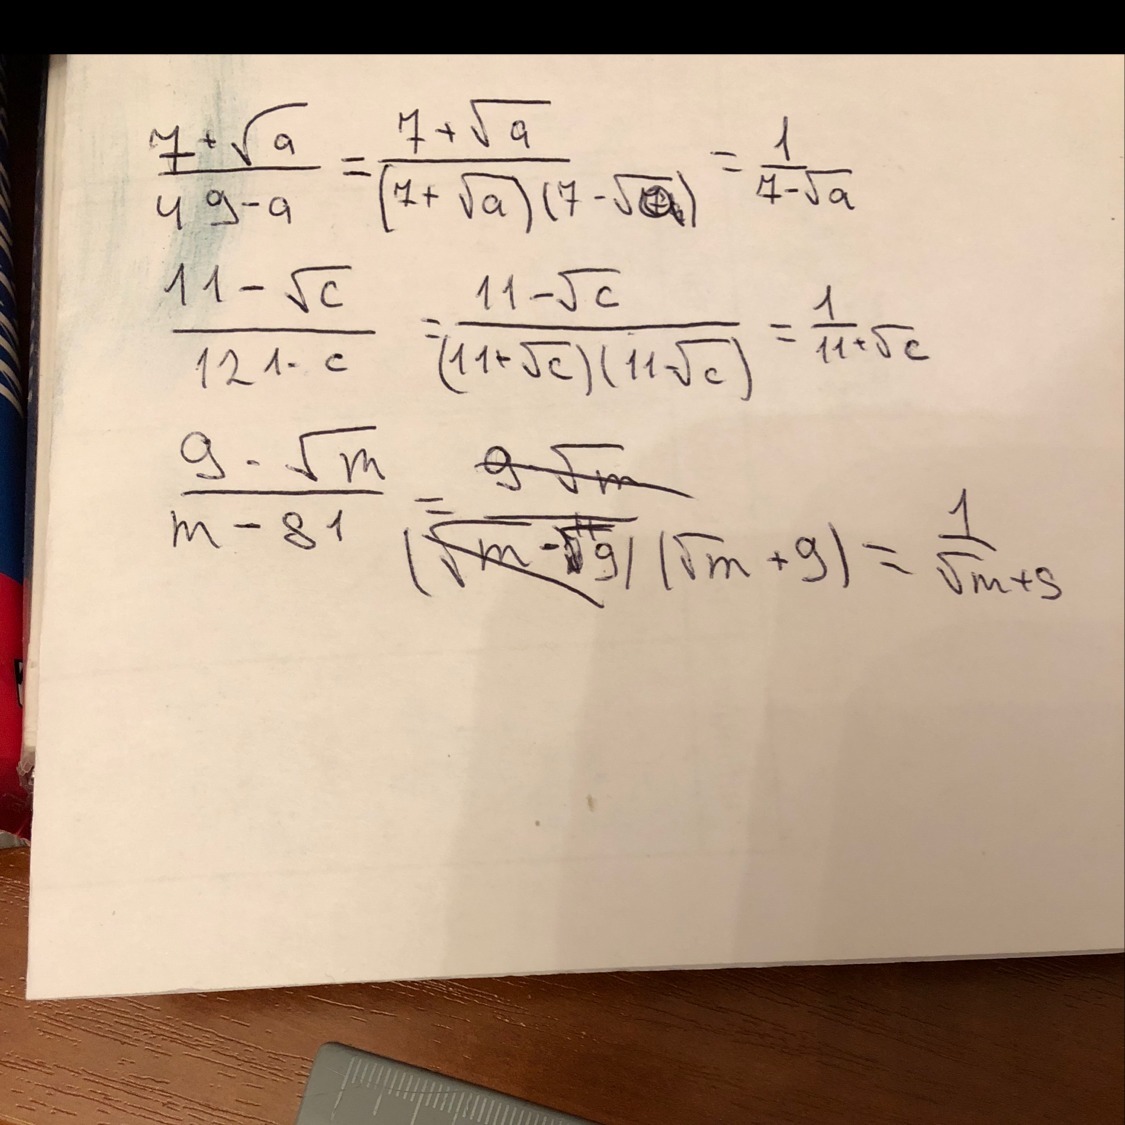 7 + √a / 49 - a = 7 + √a / (7 + √a)(7 - √a) = 1 / 7 - √a
11 - √c / 121 - c = 11 - √c / (11 + √c)(11 - √c) = 1 / 11 + √c
9 - √m / m - 81 = 9 - √m / (√m - 9)(√m + 9) = 1 / √m + 9